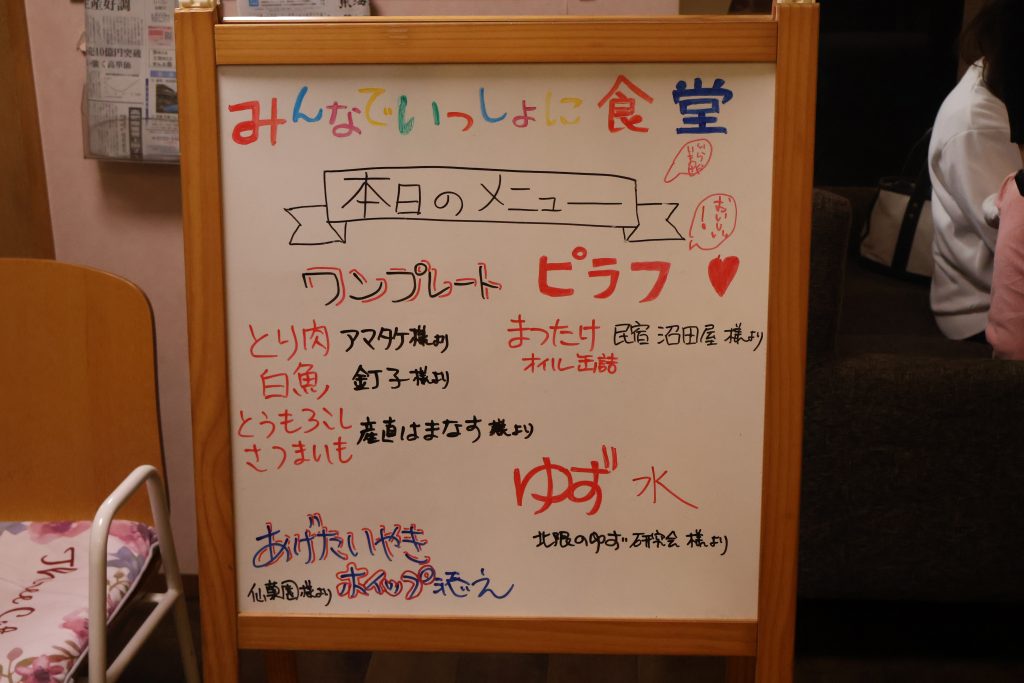 産好調
億10億円突破
強く高単価
みんなでいっしょに食堂
いらっしゃい
本日のメニュー
おいしい!
ワンプレート ピラフ
とり肉 アマタケ様より
白魚 釘子様より
とうもろこし
さつまいも
産直はまなす様より
まつたけ 民宿 沼田屋 様より
オイル缶詰
ゆず水
北限のゆず研究会 様より
あげたいやき
仙菓園様より ホイップ添え
Three C.